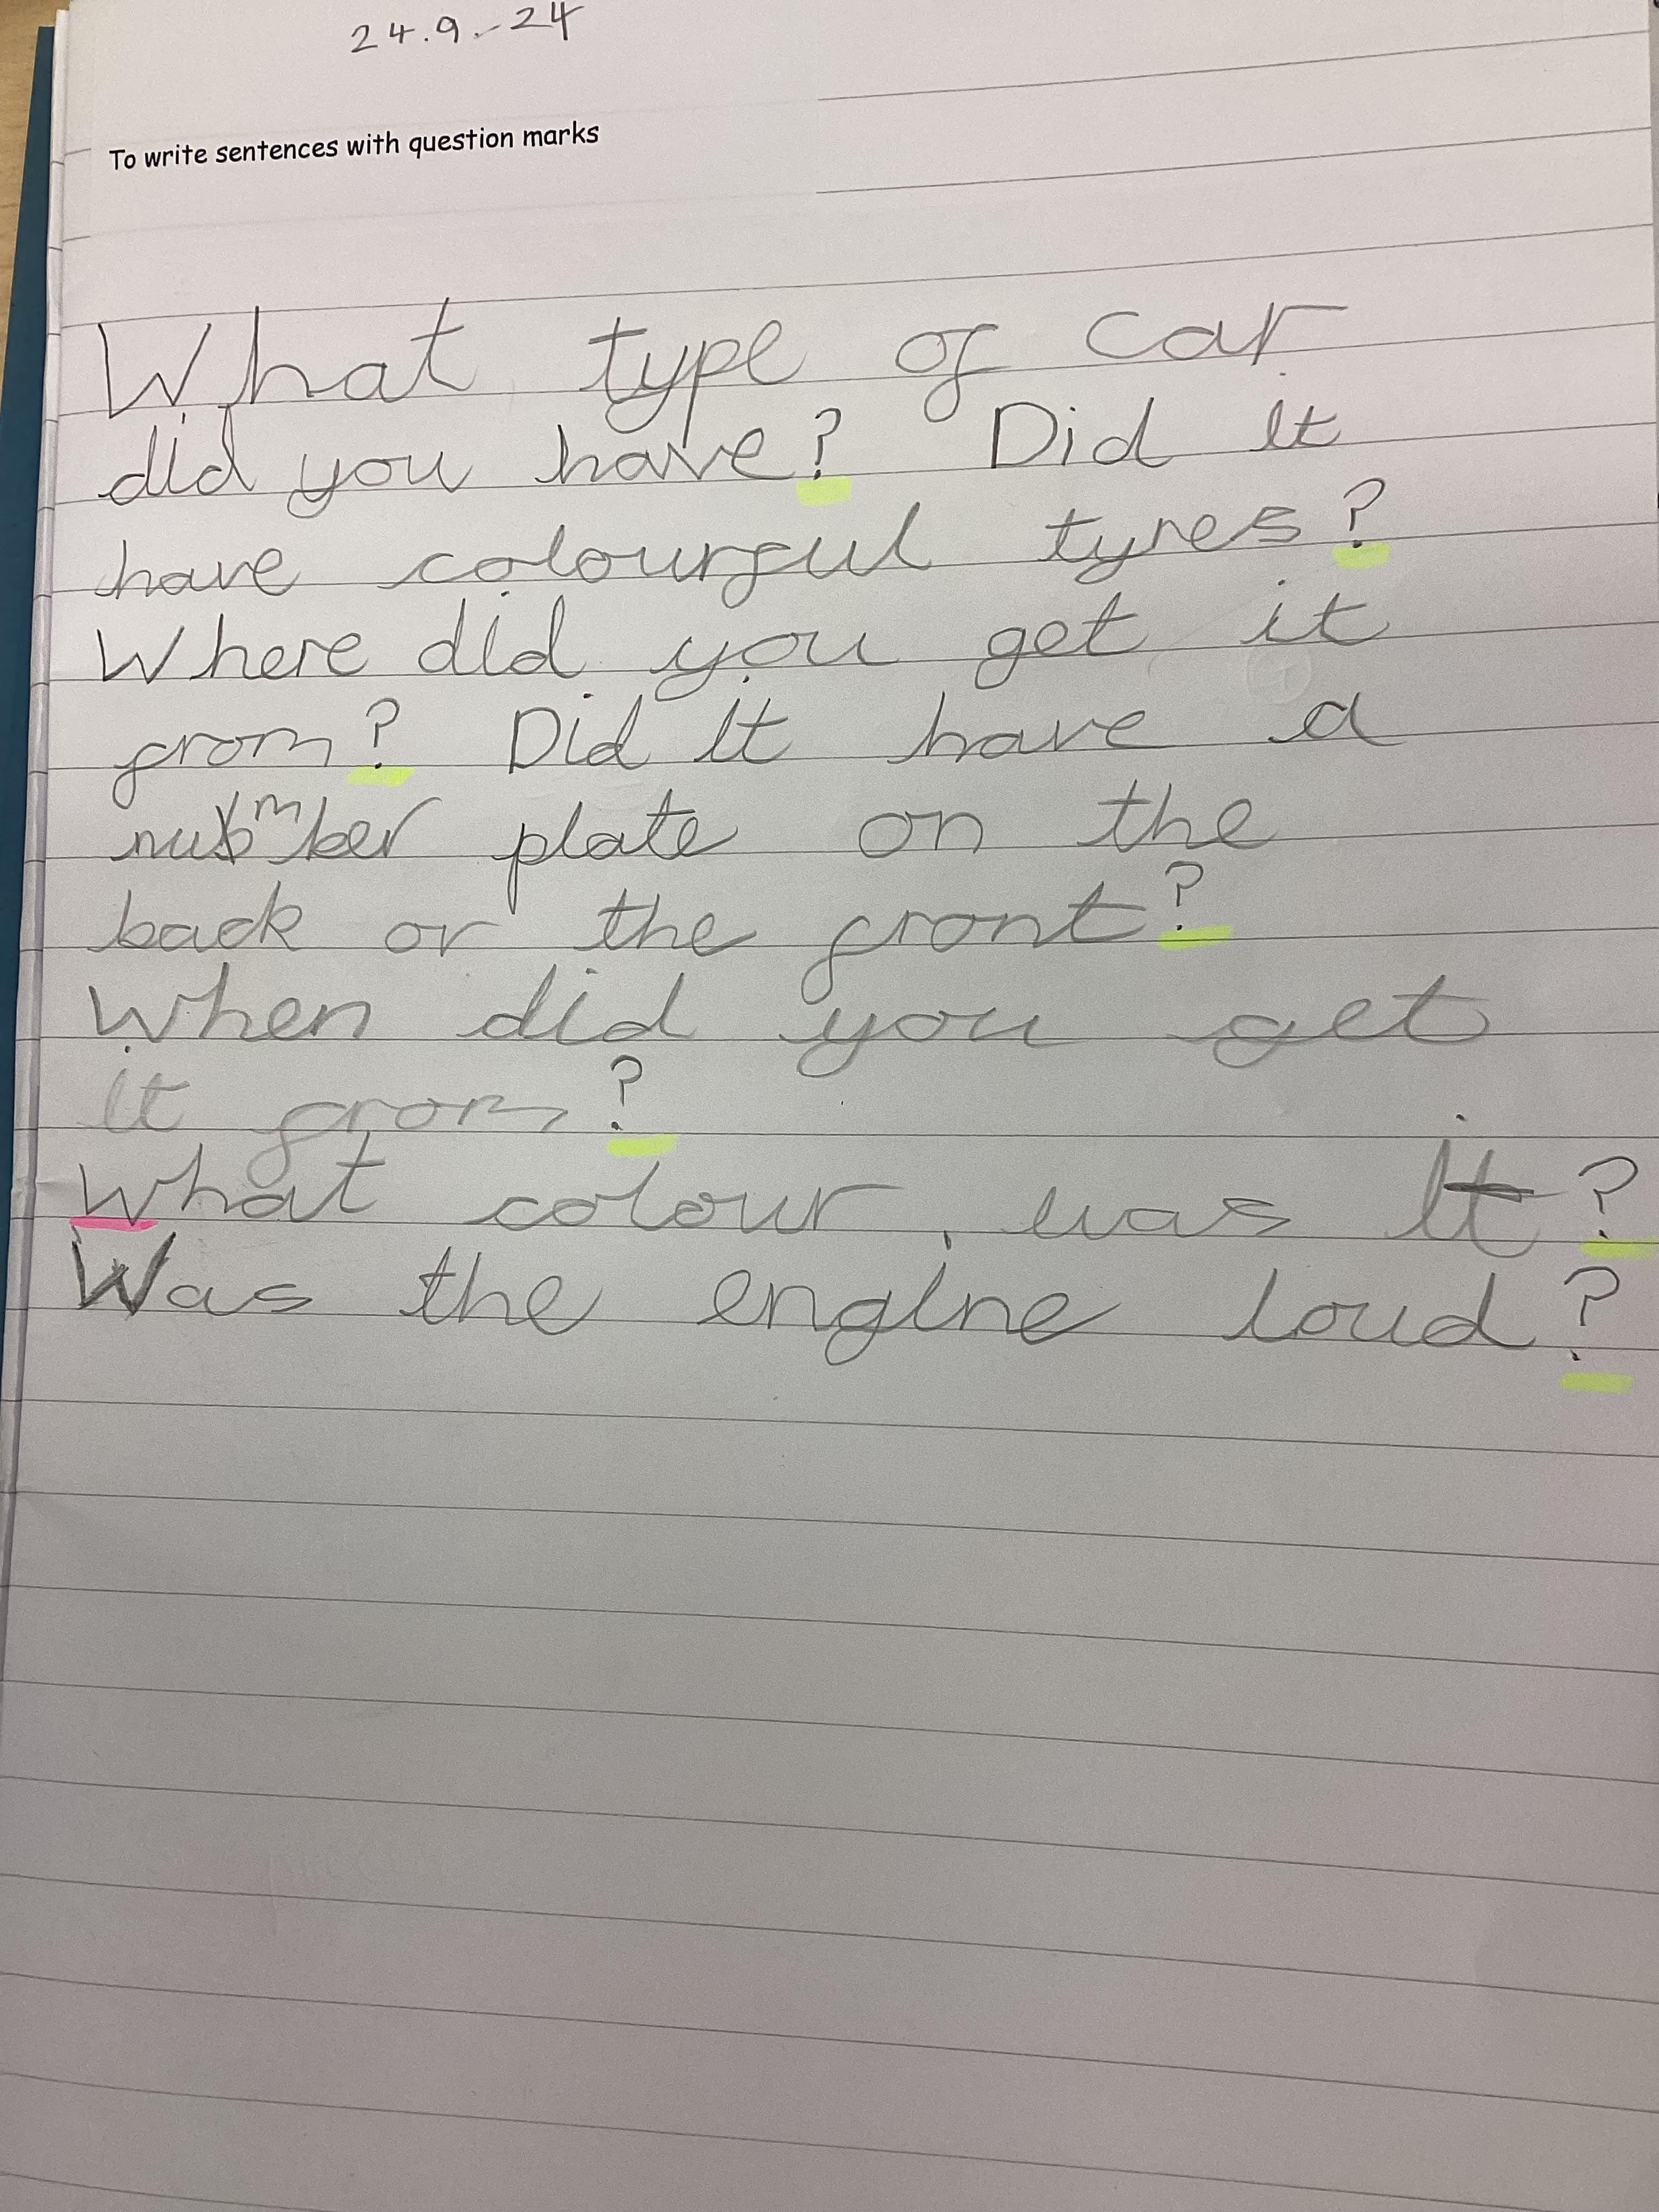 24.9.-24
To write sentences with question marks
What type of car
did you have? Did it
have colourful tyres?
Where did you get it
from? Did it have a
number plate on the
back or the front?
when did you get
it from?
what colour was it?
Was the engine loud?